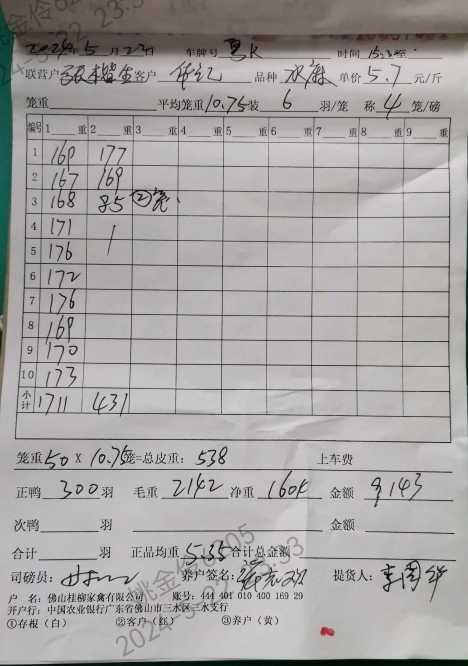 2024年5月22日 车牌号 粤K 时间 15:3
联营户 客户 品种 水麻 单价 5.7 元/斤
笼重 平均笼重 10.75 装 6 羽/笼 称 4 笼/磅
编号 1 重 2 重 3 重 4 重 5 重 6 重 7 重 8 重 9 重
1 160 177
2 167 169
3 168 85 ②笼
4 171
5 176
6 172
7 176
8 169
9 170
10 173
小计 1711 431
笼重 50 X 10.75 笼=总皮重: 538 上车费
正鸭 300 羽 毛重 2142 净重 1604 金额 9143
次鸭 羽 金额
合计 羽 正品均重 5.35 合计总金额
司磅员: 养户签名: 提货人: 李周华
户 名: 佛山桂柳家禽有限公司 账号: 444 401 010 400 169 29
开户行: 中国农业银行广东省佛山市三水区三水支行
①存根(白) ②客户(红) ③养户(黄)